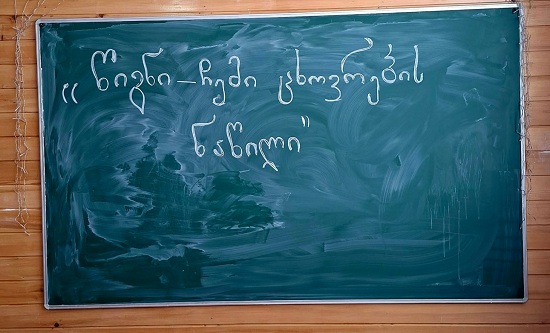 „წიგნი – ჩემი ცხოვრების
ნაწილი"